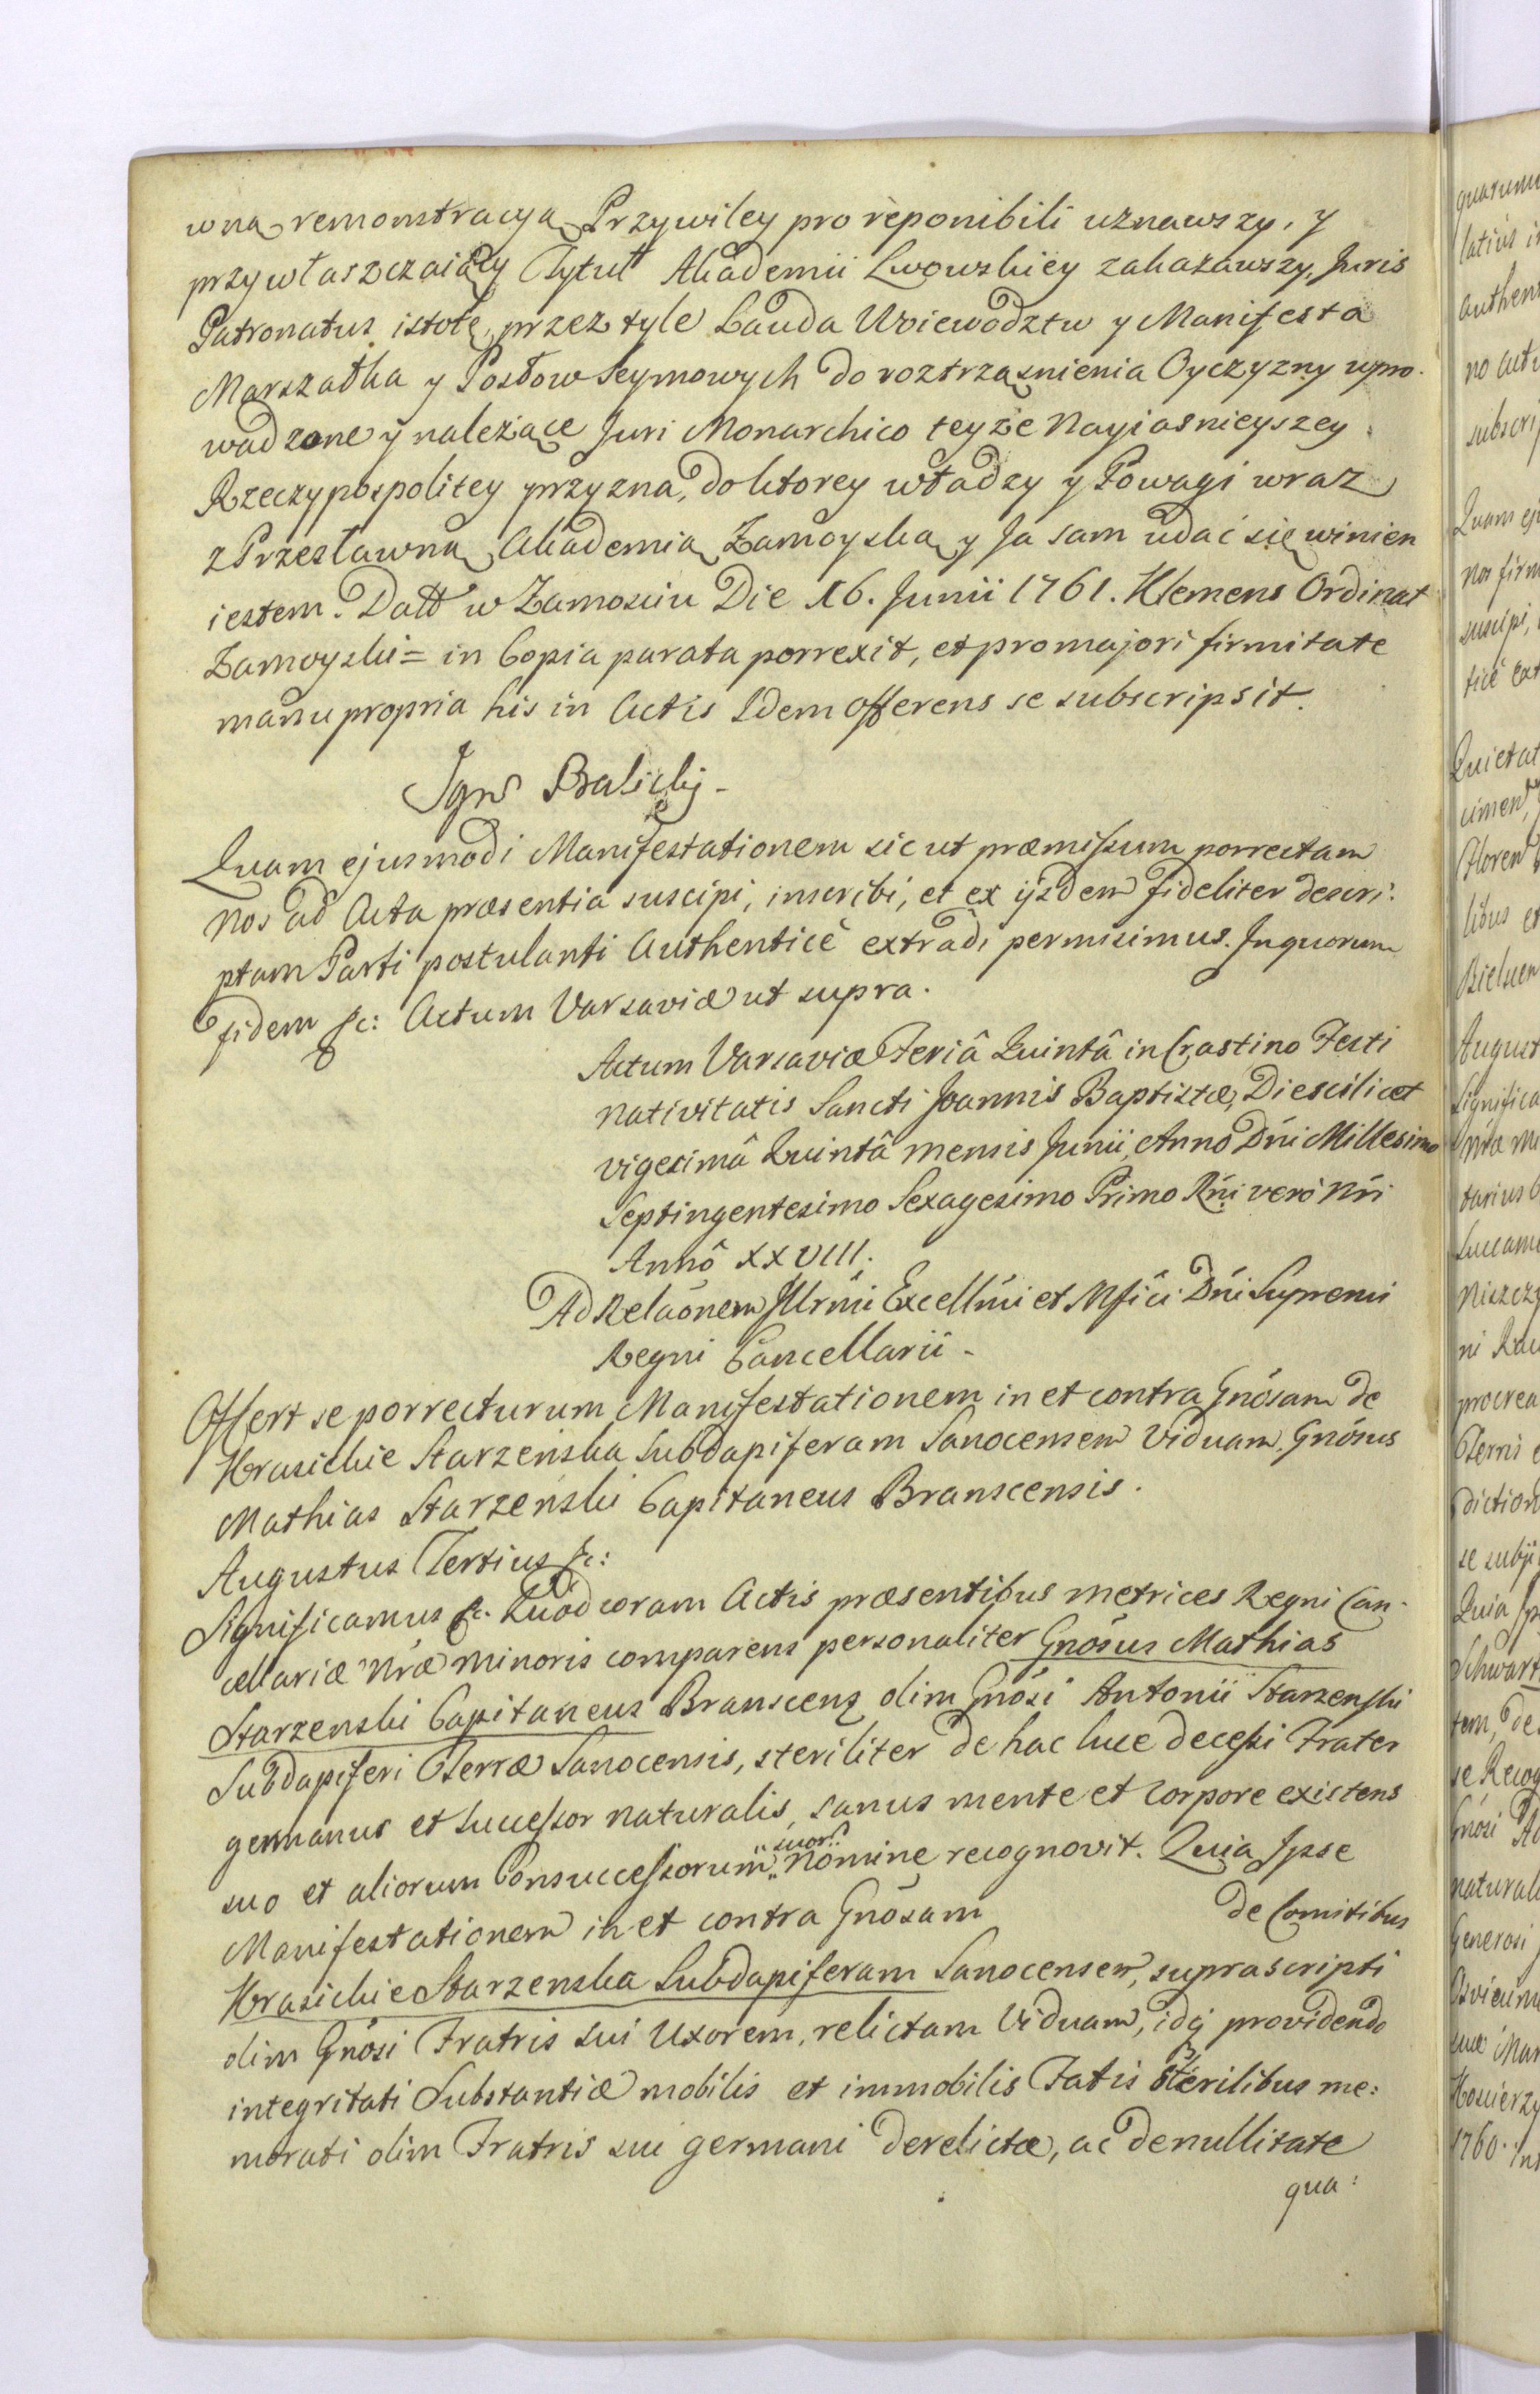 wną remonstracyą Przywiley pro reponibili uznawszy, y
przywłaszczaiący Tytuł Akademii Lwowskiey zakazawszy, Juris
Patronatus istotę, przez tyle Lauda Woiewodztw y Manifesta
Marszałka y Posłow Seymowych do roztrząsnienia Oyczyzny wpro-
wadzone y należące Juri Monarchico teyże Nayiasnieyszey
Rzeczypospolitey przyzna, do ktorey władzy y Powagi wraz
z Przesławną Akademią Zamoyską y Ja sam udać się winien
iestem. Datt w Zamosciu Die 16. Junii 1761. Klemens Ordinat
Zamoyski = in Copia parata porrexit, et pro majori firmitate
manu propria his in Actis Idem Offerens se subscripsit.
Ignꝭ Bralicki -
Quam ejusmodi Manifestationem sic ut præmissum porrectam
Nos ad Acta præsentia suscipi, inscribi, et ex ijsdem fideliter descri:
ptam Parti postulanti Authenticè extradi permisimus. In quorum
fidem &c: Actum Varsaviæ ut supra.
Actum Varsaviæ Feriâ Quintâ in Crastino Festi
Nativitatis Sancti Joannis Baptistæ, Die scilicet
vigesimâ Quintâ mensis Junii, Anno Dńi Millesimo
Septingentesimo Sexagesimo Primo Rńi verò Nŕi
Annô XXVIII.
Ad Relaõnem Jllrmi Excellmi et Mfici Dńi Supremi
Regni Cancellarii -
Offert se porrecturum Manifestationem in et contra Gnõsam de
Krasickie Starzeńska Subdapiferam Sanocensem Viduam, Gnõsus
Mathias Starzeński Capitaneus Branscensis.
Augustus Tertius &c:
Significamus &c. Quod coram Actis præsentibus Metrices Regni Can-
cellariæ Nræ Minoris comparens personaliter Gnõsus Mathias
Starzenski Capitaneus Branscens olim Gnõsi Antonii Starzenski
Subdapiferi Terræ Sanocensis, steriliter de hac luce decessi Frater
germanus et Successor naturalis, sanus mente et corpore existens
suo et aliorum Consuccessorum "suor" Nomine recognovit. Quia Ipse
Manifestationem in et contra Gnõsam de Comitibus
Krasickie Starzenska Subdapiferam Sanocensem, suprascripti
olim Gnõsi Fratris sui Uxorem, relictam Viduam, idq providendo
integritati Substantiæ mobilis et immobilis Fatis sterilibus me:
morati olim Fratris sui germani derelictæ, ac de nullitate
qua: